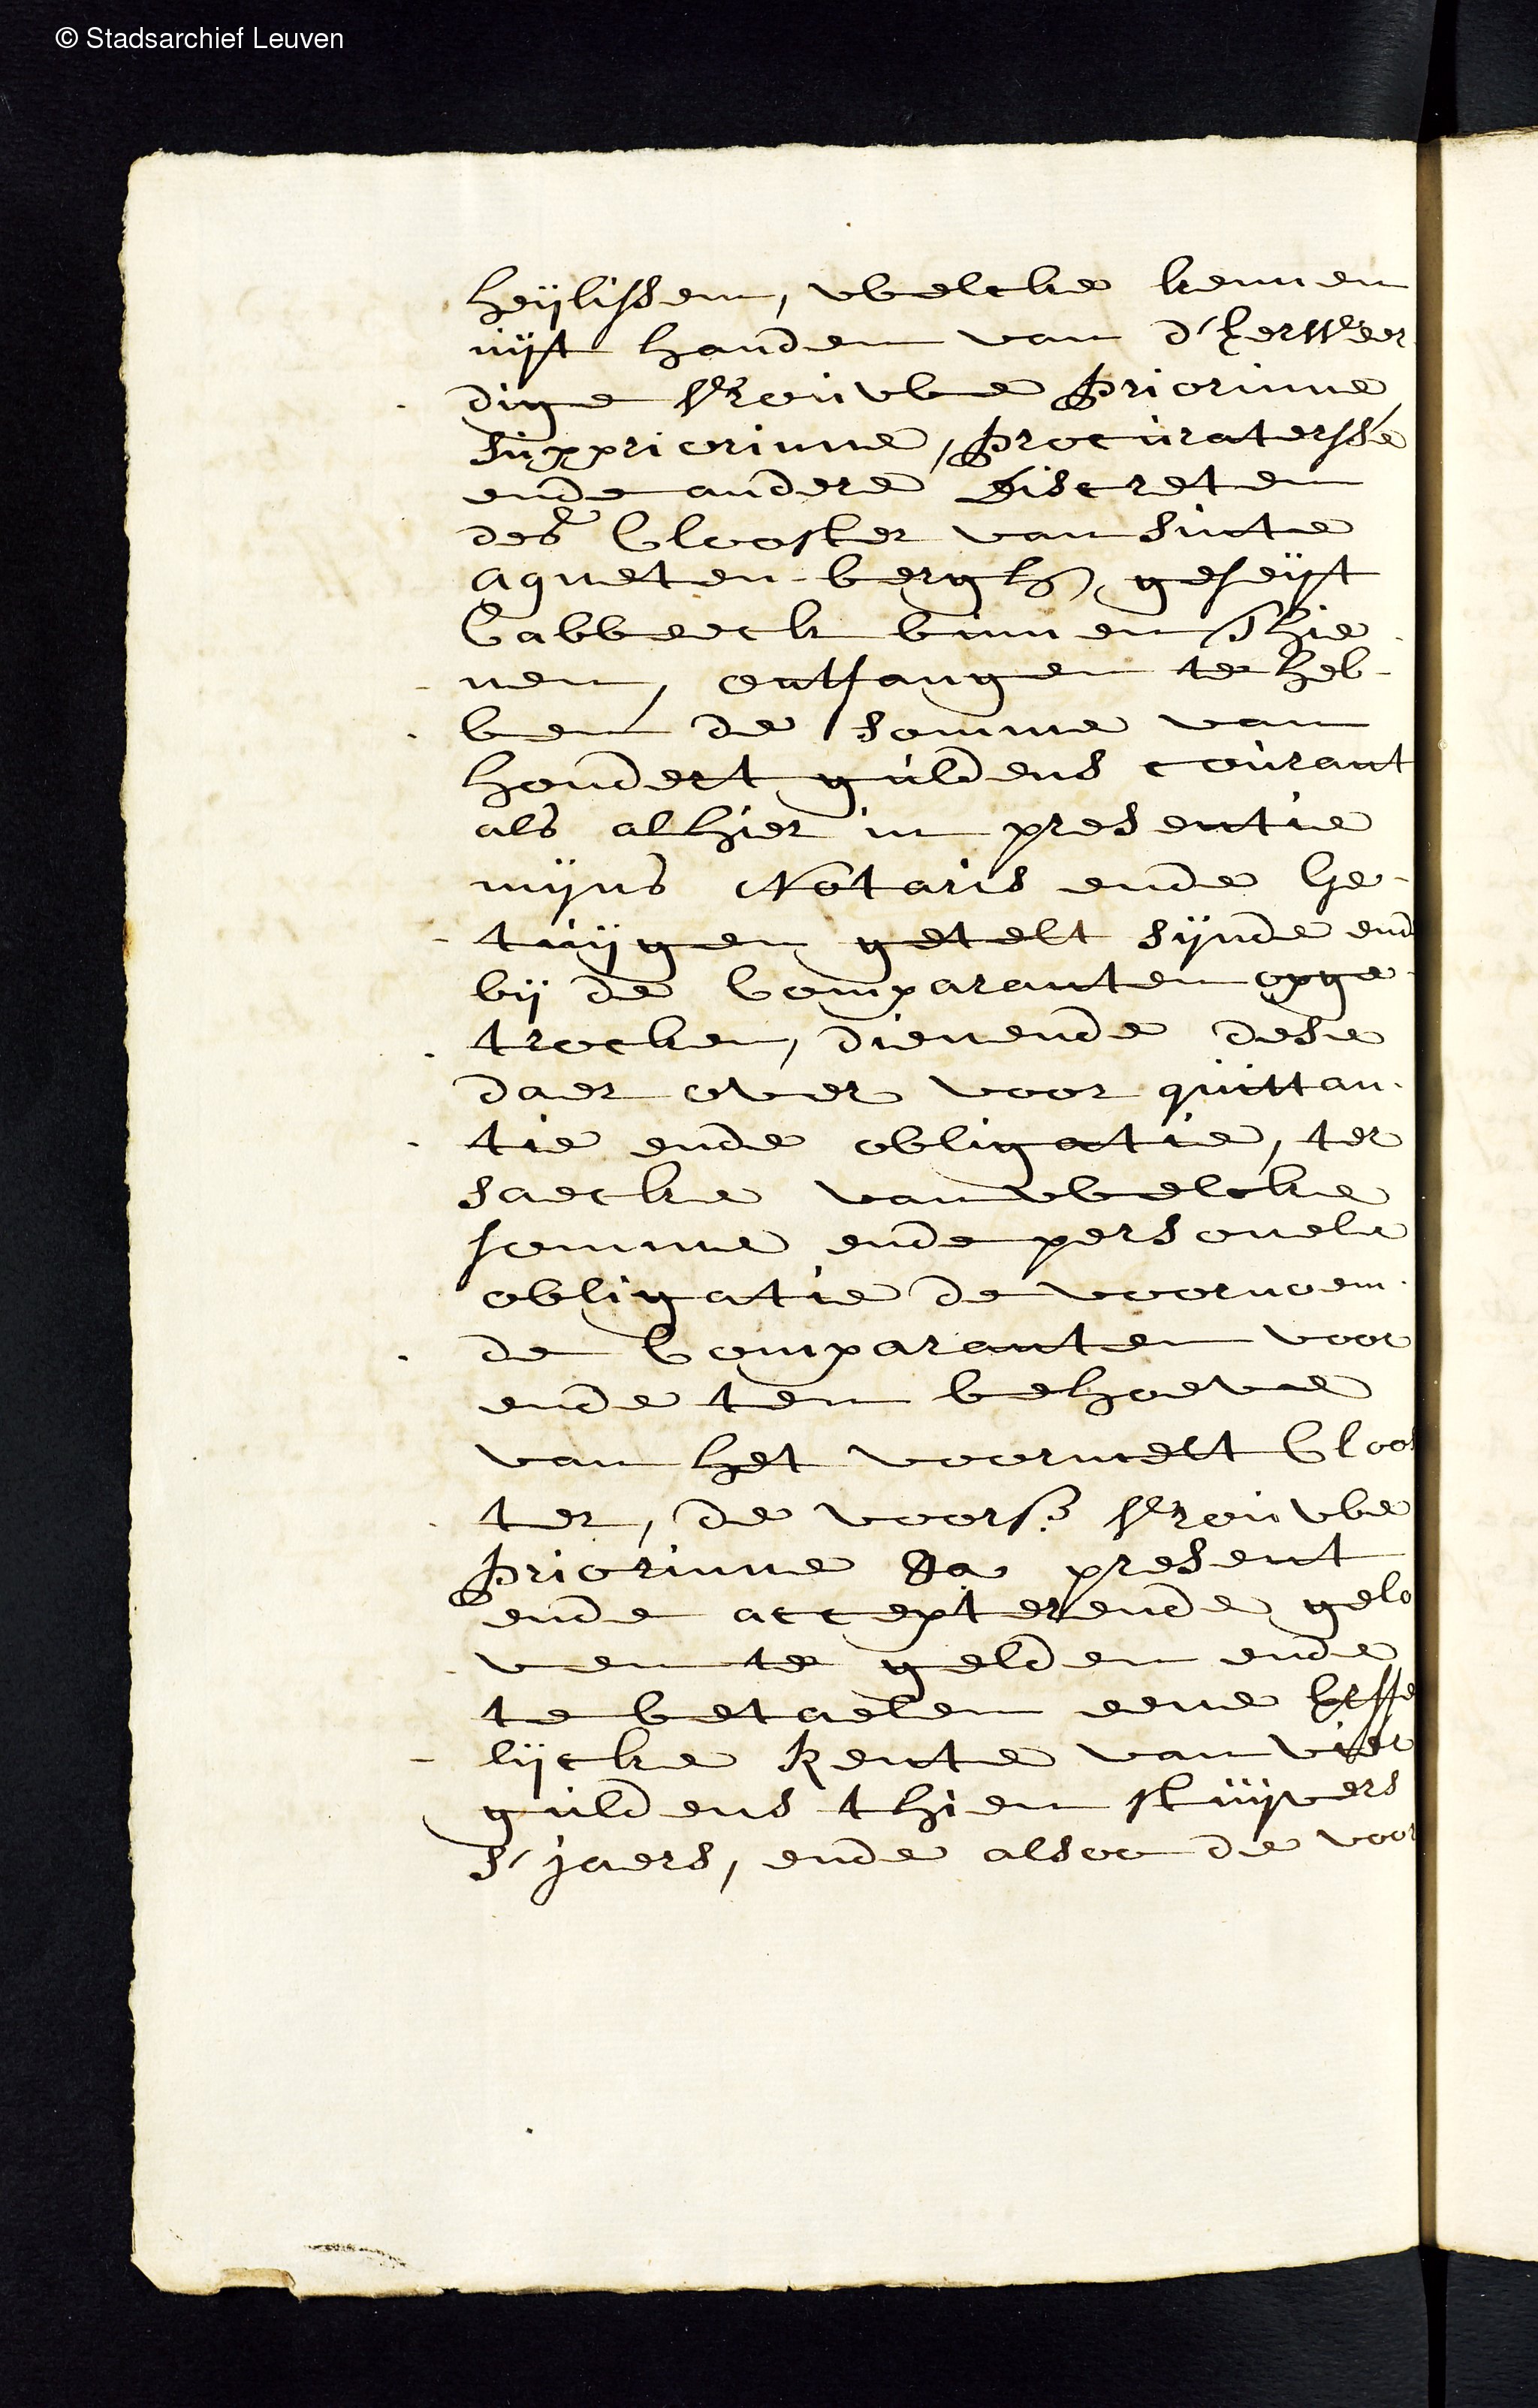 © Stadsarchief Leuven
heijlissem, welcke kennen
uijt handen van d'Eerweer
dige Vrouwe Priorinne
suppriorinne, Procuratersse
ende andere Discreten
des Clooster van sinte
agneten-bergh, geseijt
Cabbeeck binnen Thie
nen, ontfangen te heb-
ben de somme van
hondert guldens courant
als alhier in presentie
mijns Notaris ende Ge-
tuijgen getelt sijnde ende
bij de Comparanten opge
trocken, dienende dese
daer over voor quittan-
tie ende obligatie, ter
saecke van welcke
somme ende personele
obligatie de voornoem-
de Comparanten voor
ende ten behoeve
van het voormelt Cloos
ter, de voors. Vrouwe
Priorinne Ja present
ende accepterende gelo
ven te gelden ende
te betaelen eene erffe
lijcke Rente van vier
guldens thien stuijvers
s'jaers, ende alsoo de voor